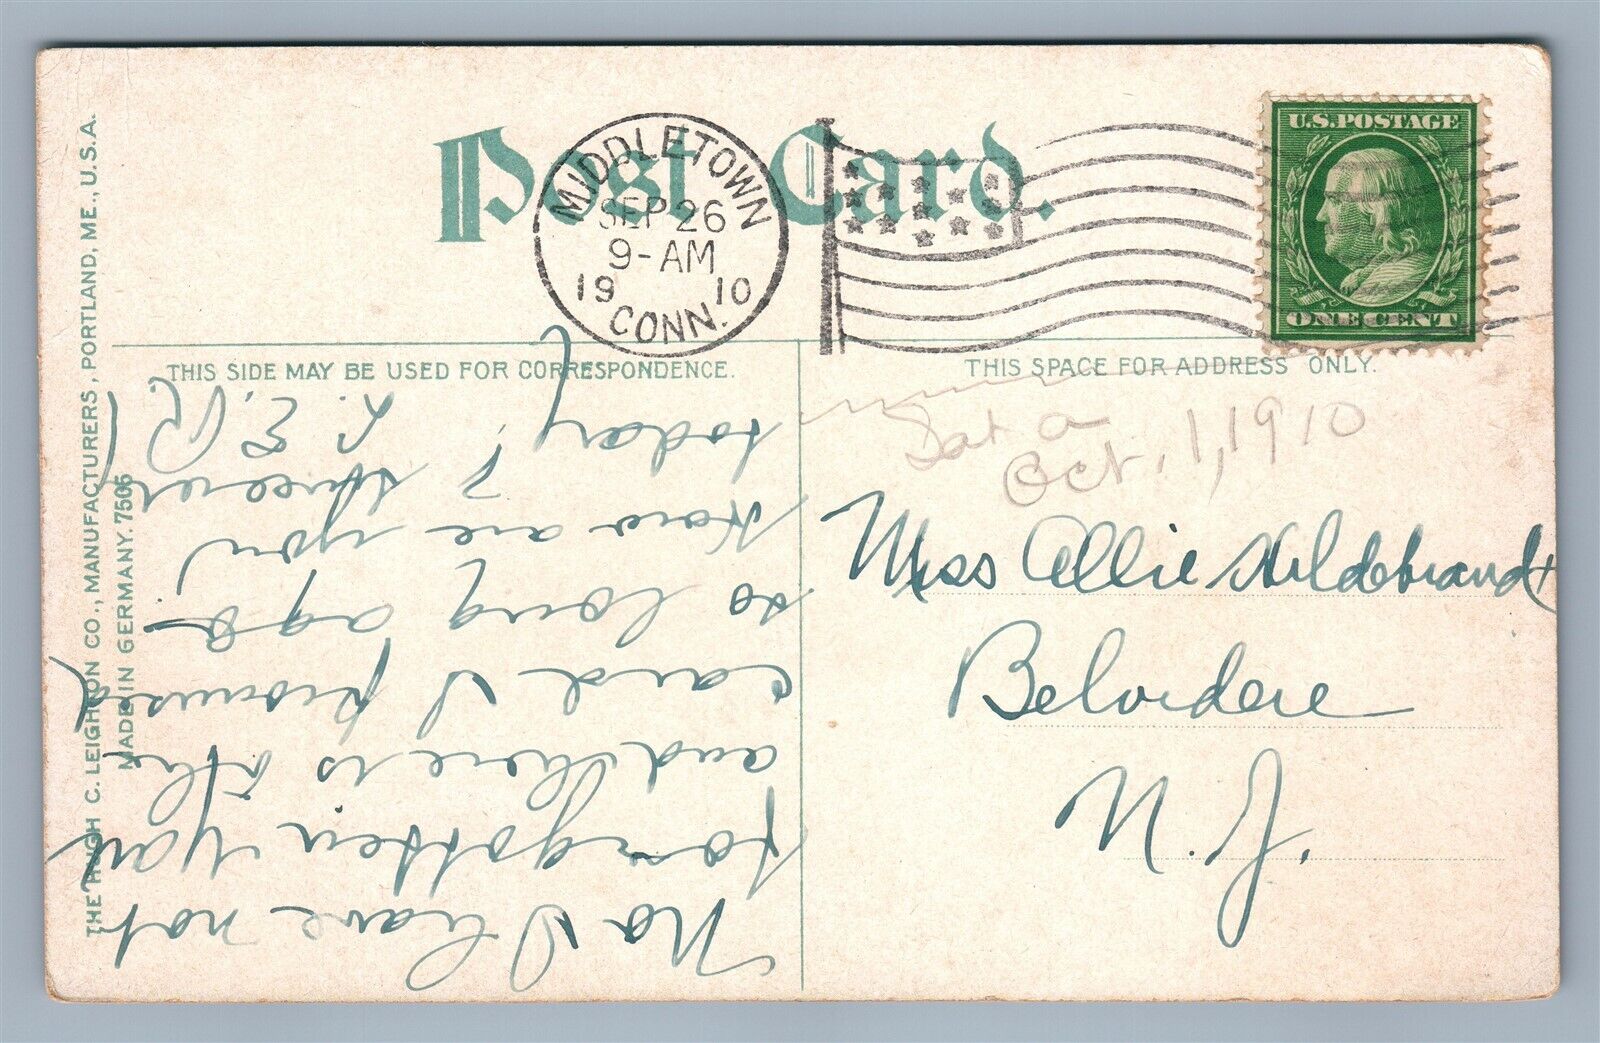 Post Card.
MIDDLETOWN
SEP 26
9-AM
1910
CONN.
U.S. POSTAGE
ONE CENT
THIS SIDE MAY BE USED FOR CORRESPONDENCE.
THIS SPACE FOR ADDRESS ONLY.
THE HUGH C. LEIGHTON CO., MANUFACTURERS, PORTLAND, ME., U.S.A.
MADE IN GERMANY. 7505
No I have not
forgotten you
and here is the
card I promised
so long ago.
How are you
today?
L. E. R.
Oct. 1, 1910
Miss Allie Hildebrandt
Belvidere
N. J.